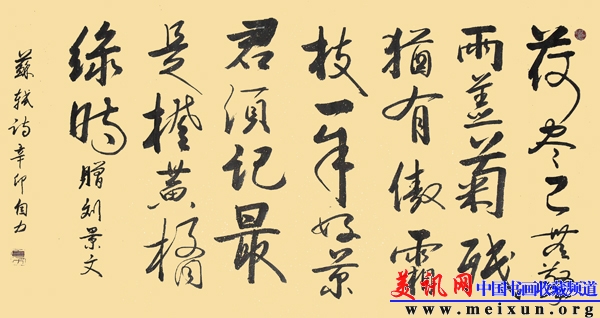 荷尽已無擎
雨盖菊残
猶有傲霜
枝一年好景
君須記最
是橙黄橘
緑時 贈刘景文
蘇軾詩 辛卯自力
美讯网 中国书画收藏频道
www.meixun.org